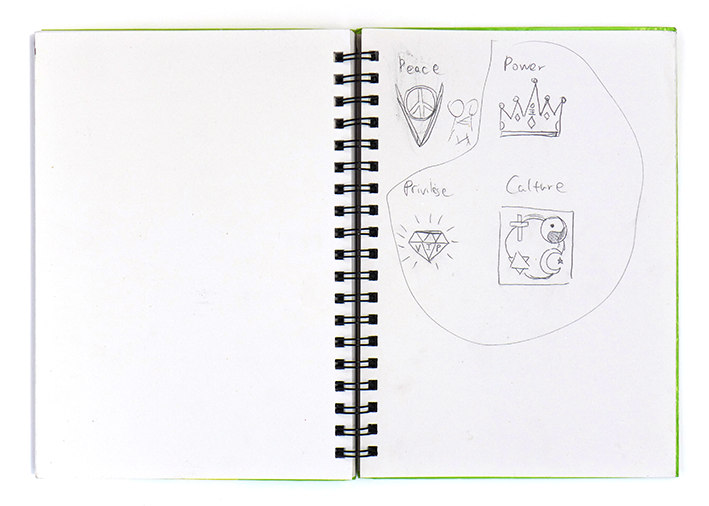 Peace
Power
Privilege
Culture
VIP